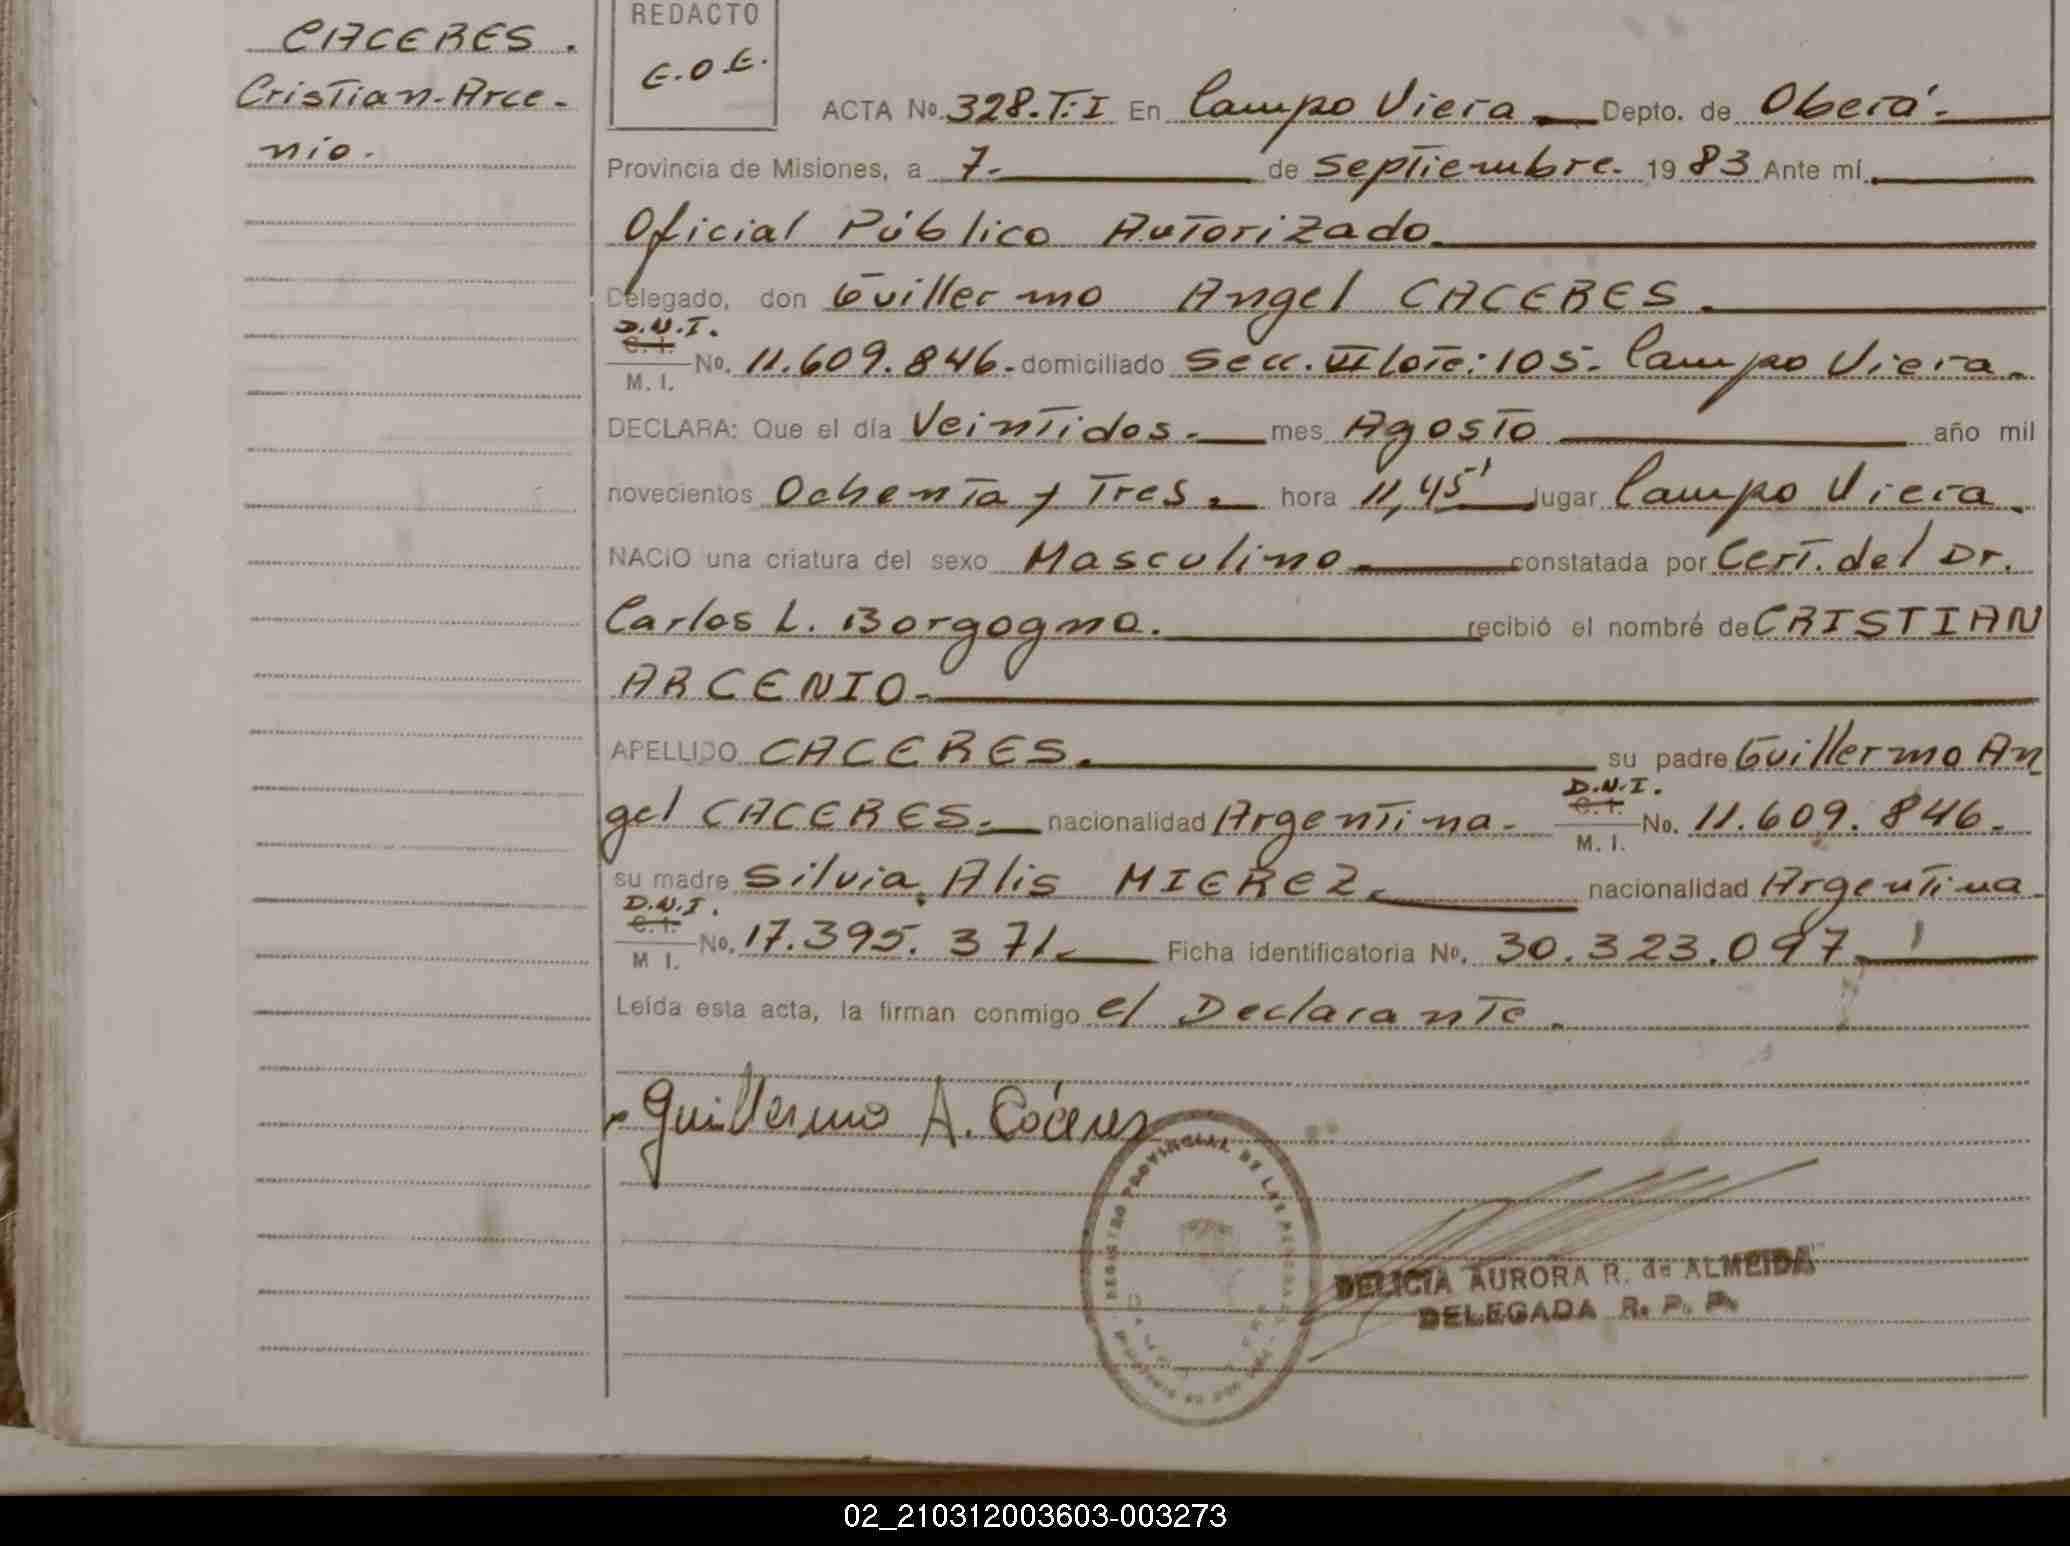 CACERES.
Cristian-Arce-
nio.
REDACTO
E.O.E.
ACTA No. 328.T.I En Campo Viera Depto. de Oberá.
Provincia de Misiones, a 7. de Septiembre. 1983 Ante mí
Oficial Público Autorizado.
Delegado, don Guillermo Angel CACERES.
D.N.I.
C. I.
M. I. No. 11.609.846. domiciliado Secc. VI Lote: 105. Campo Viera.
DECLARA: Que el día Veintidos. mes Agosto año mil
novecientos Ochenta y Tres. hora 11,45' lugar Campo Viera.
NACIO una criatura del sexo Masculino constatada por Cert. del Dr.
Carlos L. Borgogno. recibió el nombre de CRISTIAN
ARCENIO.
APELLIDO CACERES. su padre Guillermo An
gel CACERES. nacionalidad Argentina. D.N.I. C. I. M. I. No. 11.609.846.
su madre Silvia Alis MIEREZ. nacionalidad Argentina.
D.N.I.
C. I.
M I. No. 17.395.371. Ficha identificatoria No. 30.323.097.
Leída esta acta, la firman conmigo el Declarante.
Guillermo A. Cáceres
REGISTRO PROVINCIAL DE LAS PERSONAS
DELICIA AURORA R. de ALMEIDA
DELEGADA R. P. P.
02_210312003603-003273